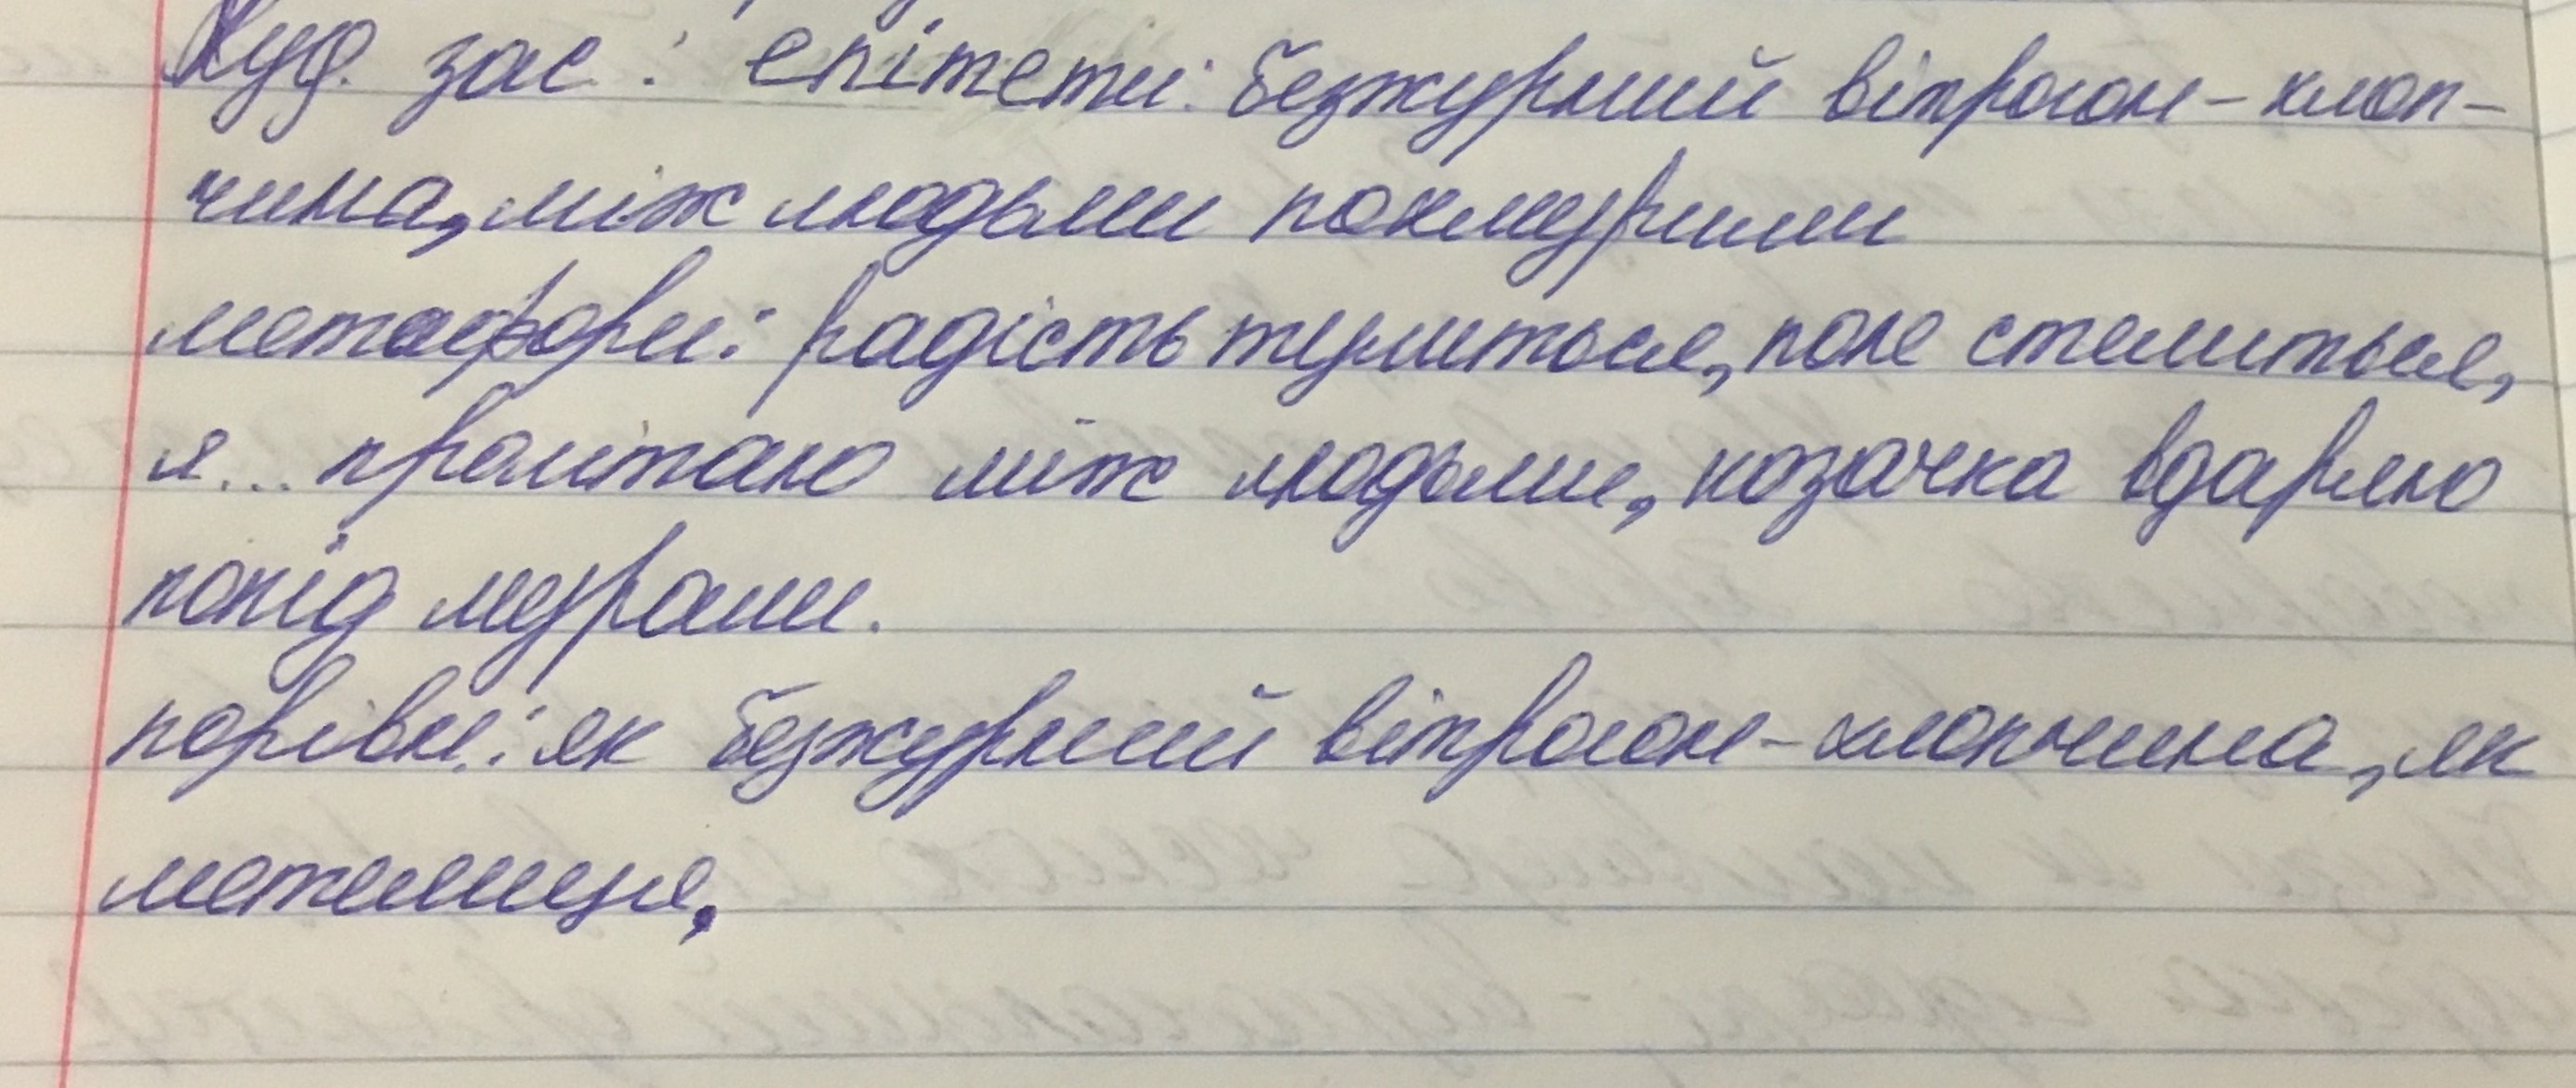 Худ. зас: епітети: безжурний вітрогон-хлоп-
чина, між людьми похмурими
метафори: радість тулиться, поле стелиться,
я... пролітаю між людьми, козачка вдаряю
попід мурами.
порівн.: як безжурний вітрогон-хлопчина, як
метелиця,